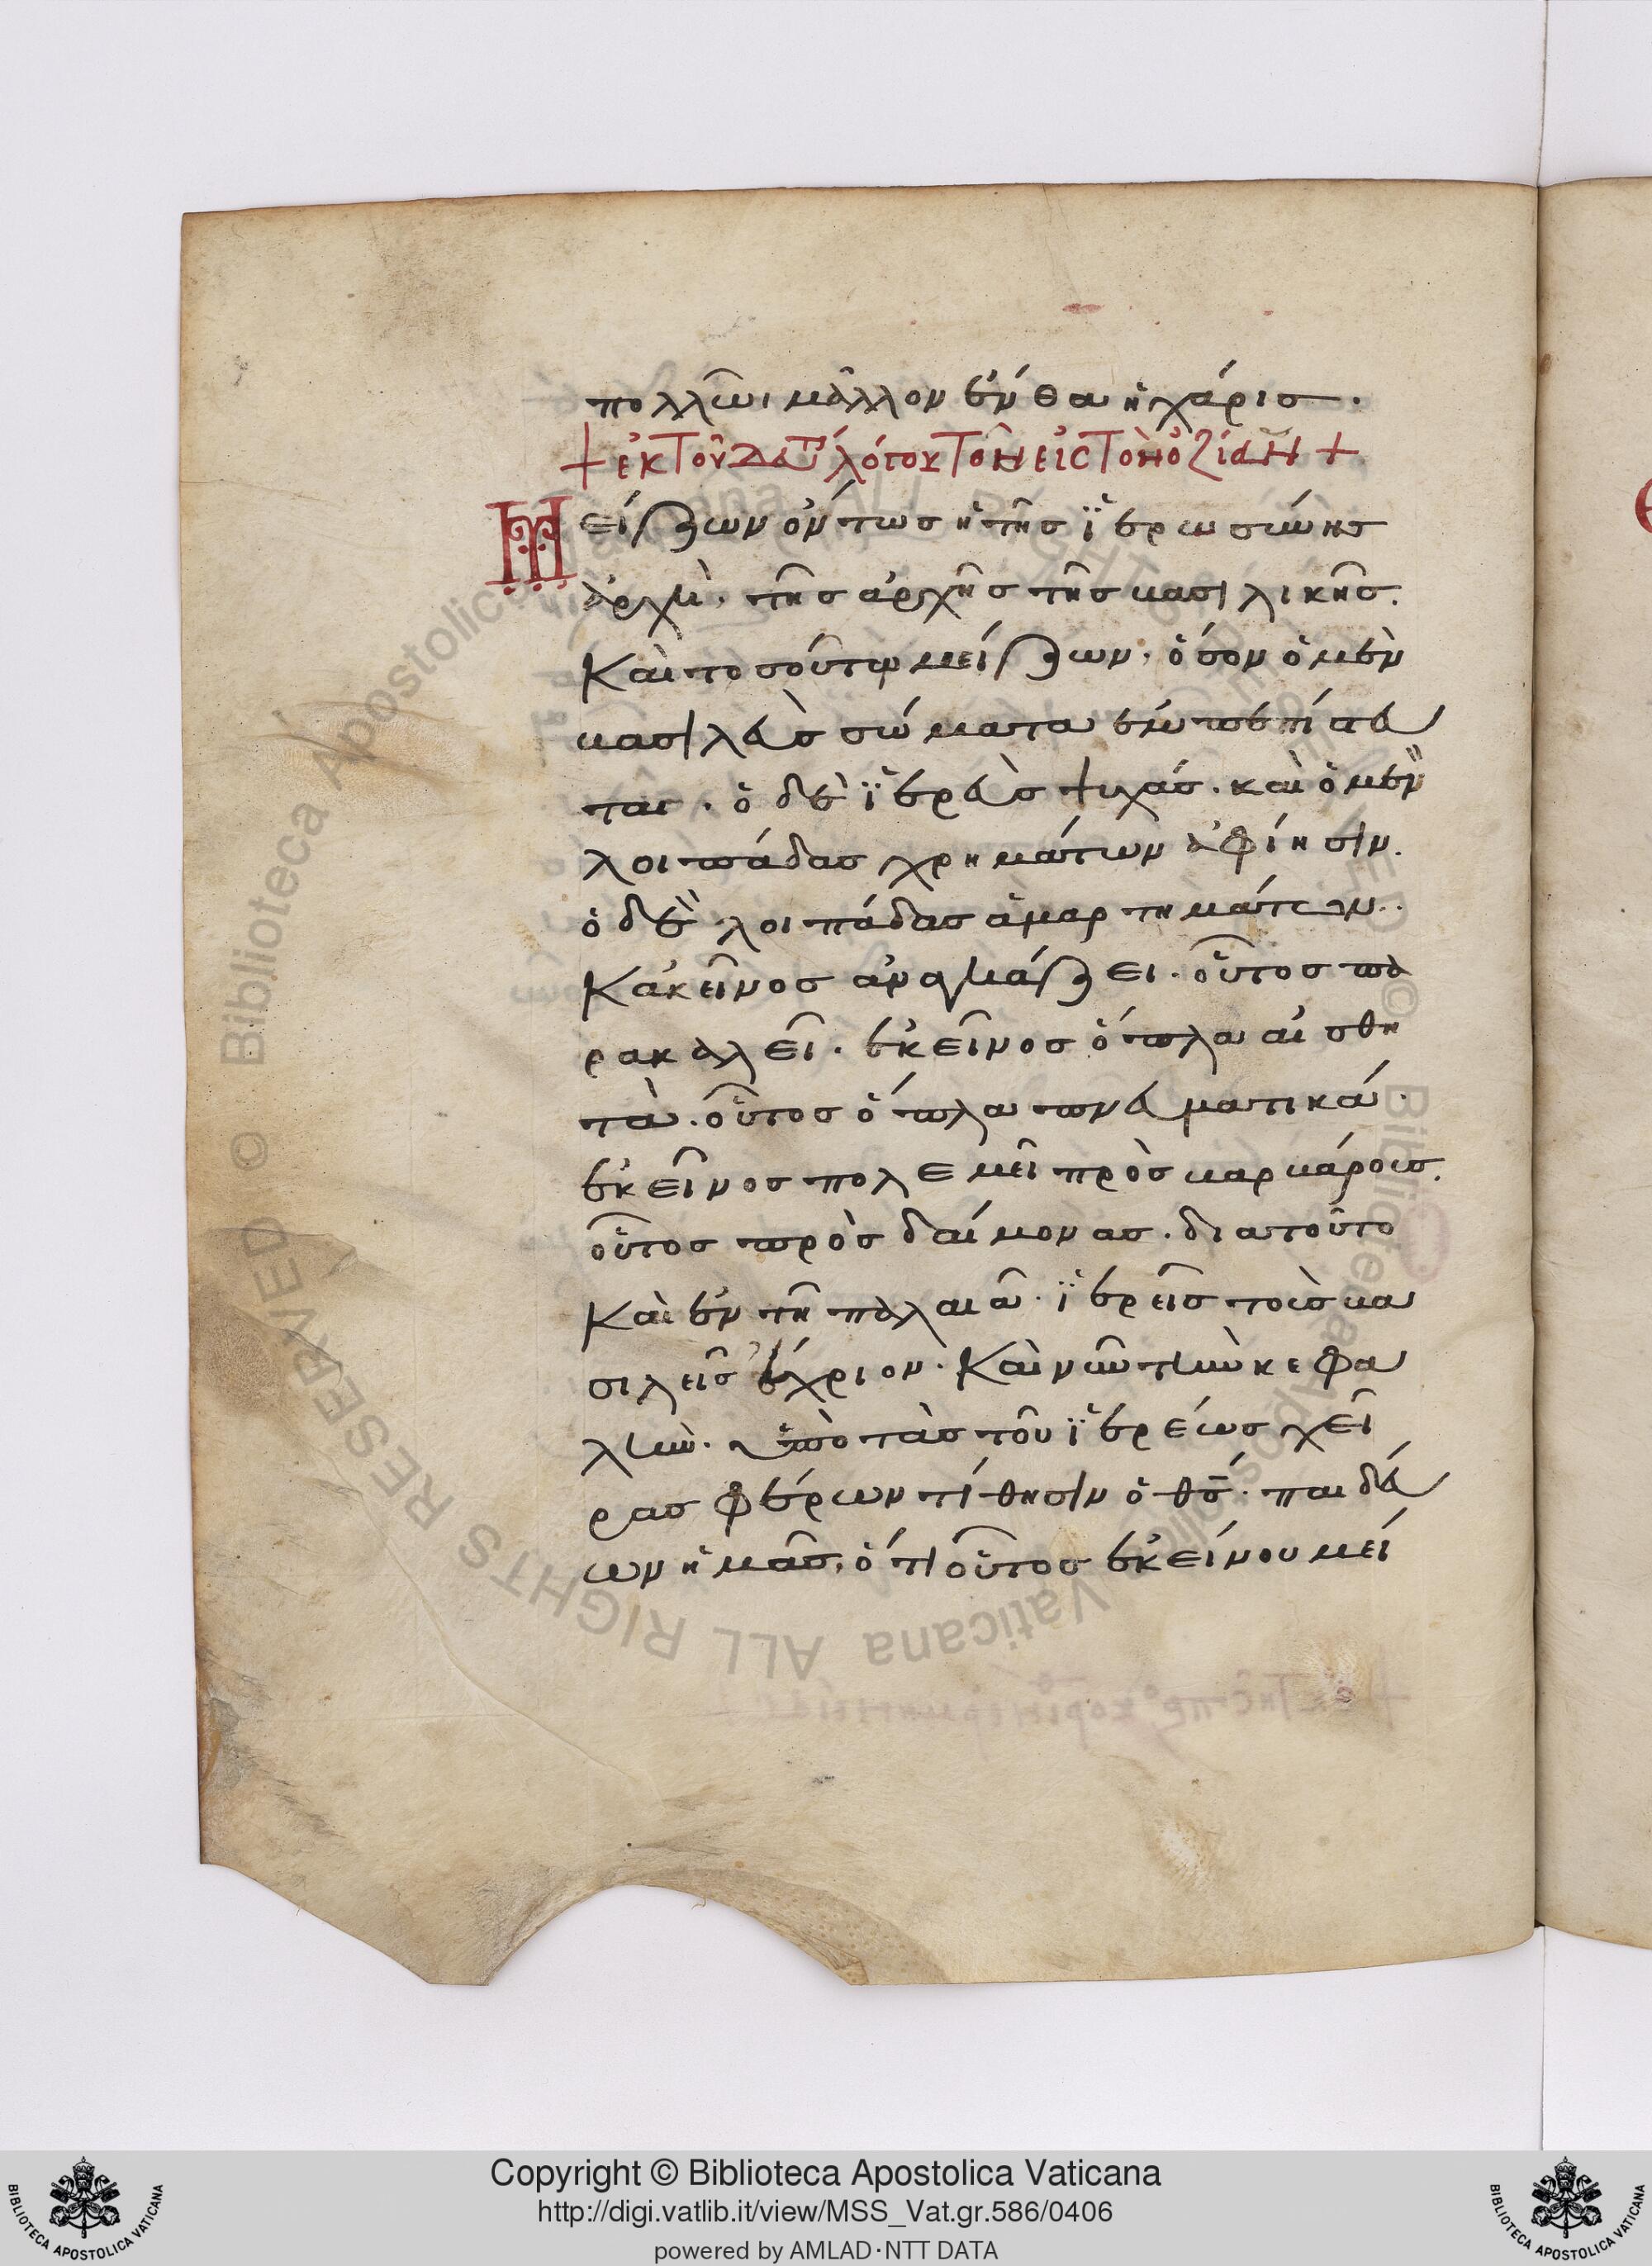 πολλῶι μᾶλλον ἐνθα ἡ χάρισ.
+ ἐκ τοῦ δευτ λόγου κ τῶν εἰς τὸν ὀζίαν +
Μείζων ὄντωσ ἡ τῆσ ἱερωσύνησ
ἀρχὴ, τῆσ ἀρχῆσ τῆσ βασιλικῆσ.
Καὶ τοσούτῳ μείζων, ὅσον ὁ μὲν
βασιλεὺσ σώματα ἐμπεπίστευ
ται. ὁ δὲ ἱερεὺσ ψυχάσ. καὶ ὁ μὲν
λοιπάδασ χρημάτων ἀφίησιν.
ὁ δὲ λοιπάδασ ἁμαρτημάτων.
Κἀκεῖνοσ ἀναγκάζει. οὗτοσ πα
ρακαλεῖ. ἐκεῖνοσ ὅπλα αἰσθη
τὰ. οὗτοσ ὅπλα πνευματικά.
ἐκεῖνοσ πολεμεῖ πρὸσ βαρβάρουσ.
οὗτοσ πρὸσ δαίμονασ. διατοῦτο
Καὶ ἐν τῆ παλαιᾶ. ἱερεῖσ τοὺσ βα
σιλεῖσ ἔχριον. Καὶ νῦν τὴν κεφα
λὴν. ὑπὸ τὰσ τοῦ ἱερέωσ χεῖ
ρασ φέρων τίθησιν ὁ θσ. παιδεύ
ων ἡμᾶσ, ὅτι οὗτοσ ἐκείνου μεί
Copyright © Biblioteca Apostolica Vaticana
http://digi.vatlib.it/view/MSS_Vat.gr.586/0406
powered by AMLAD·NTT DATA
BIBLIOTECA APOSTOLICA VATICANA
BIBLIOTECA APOSTOLICA VATICANA
Biblioteca Apostolica Vaticana ALL RIGHTS RESERVED ©
Biblioteca Apostolica Vaticana ALL RIGHTS RESERVED ©